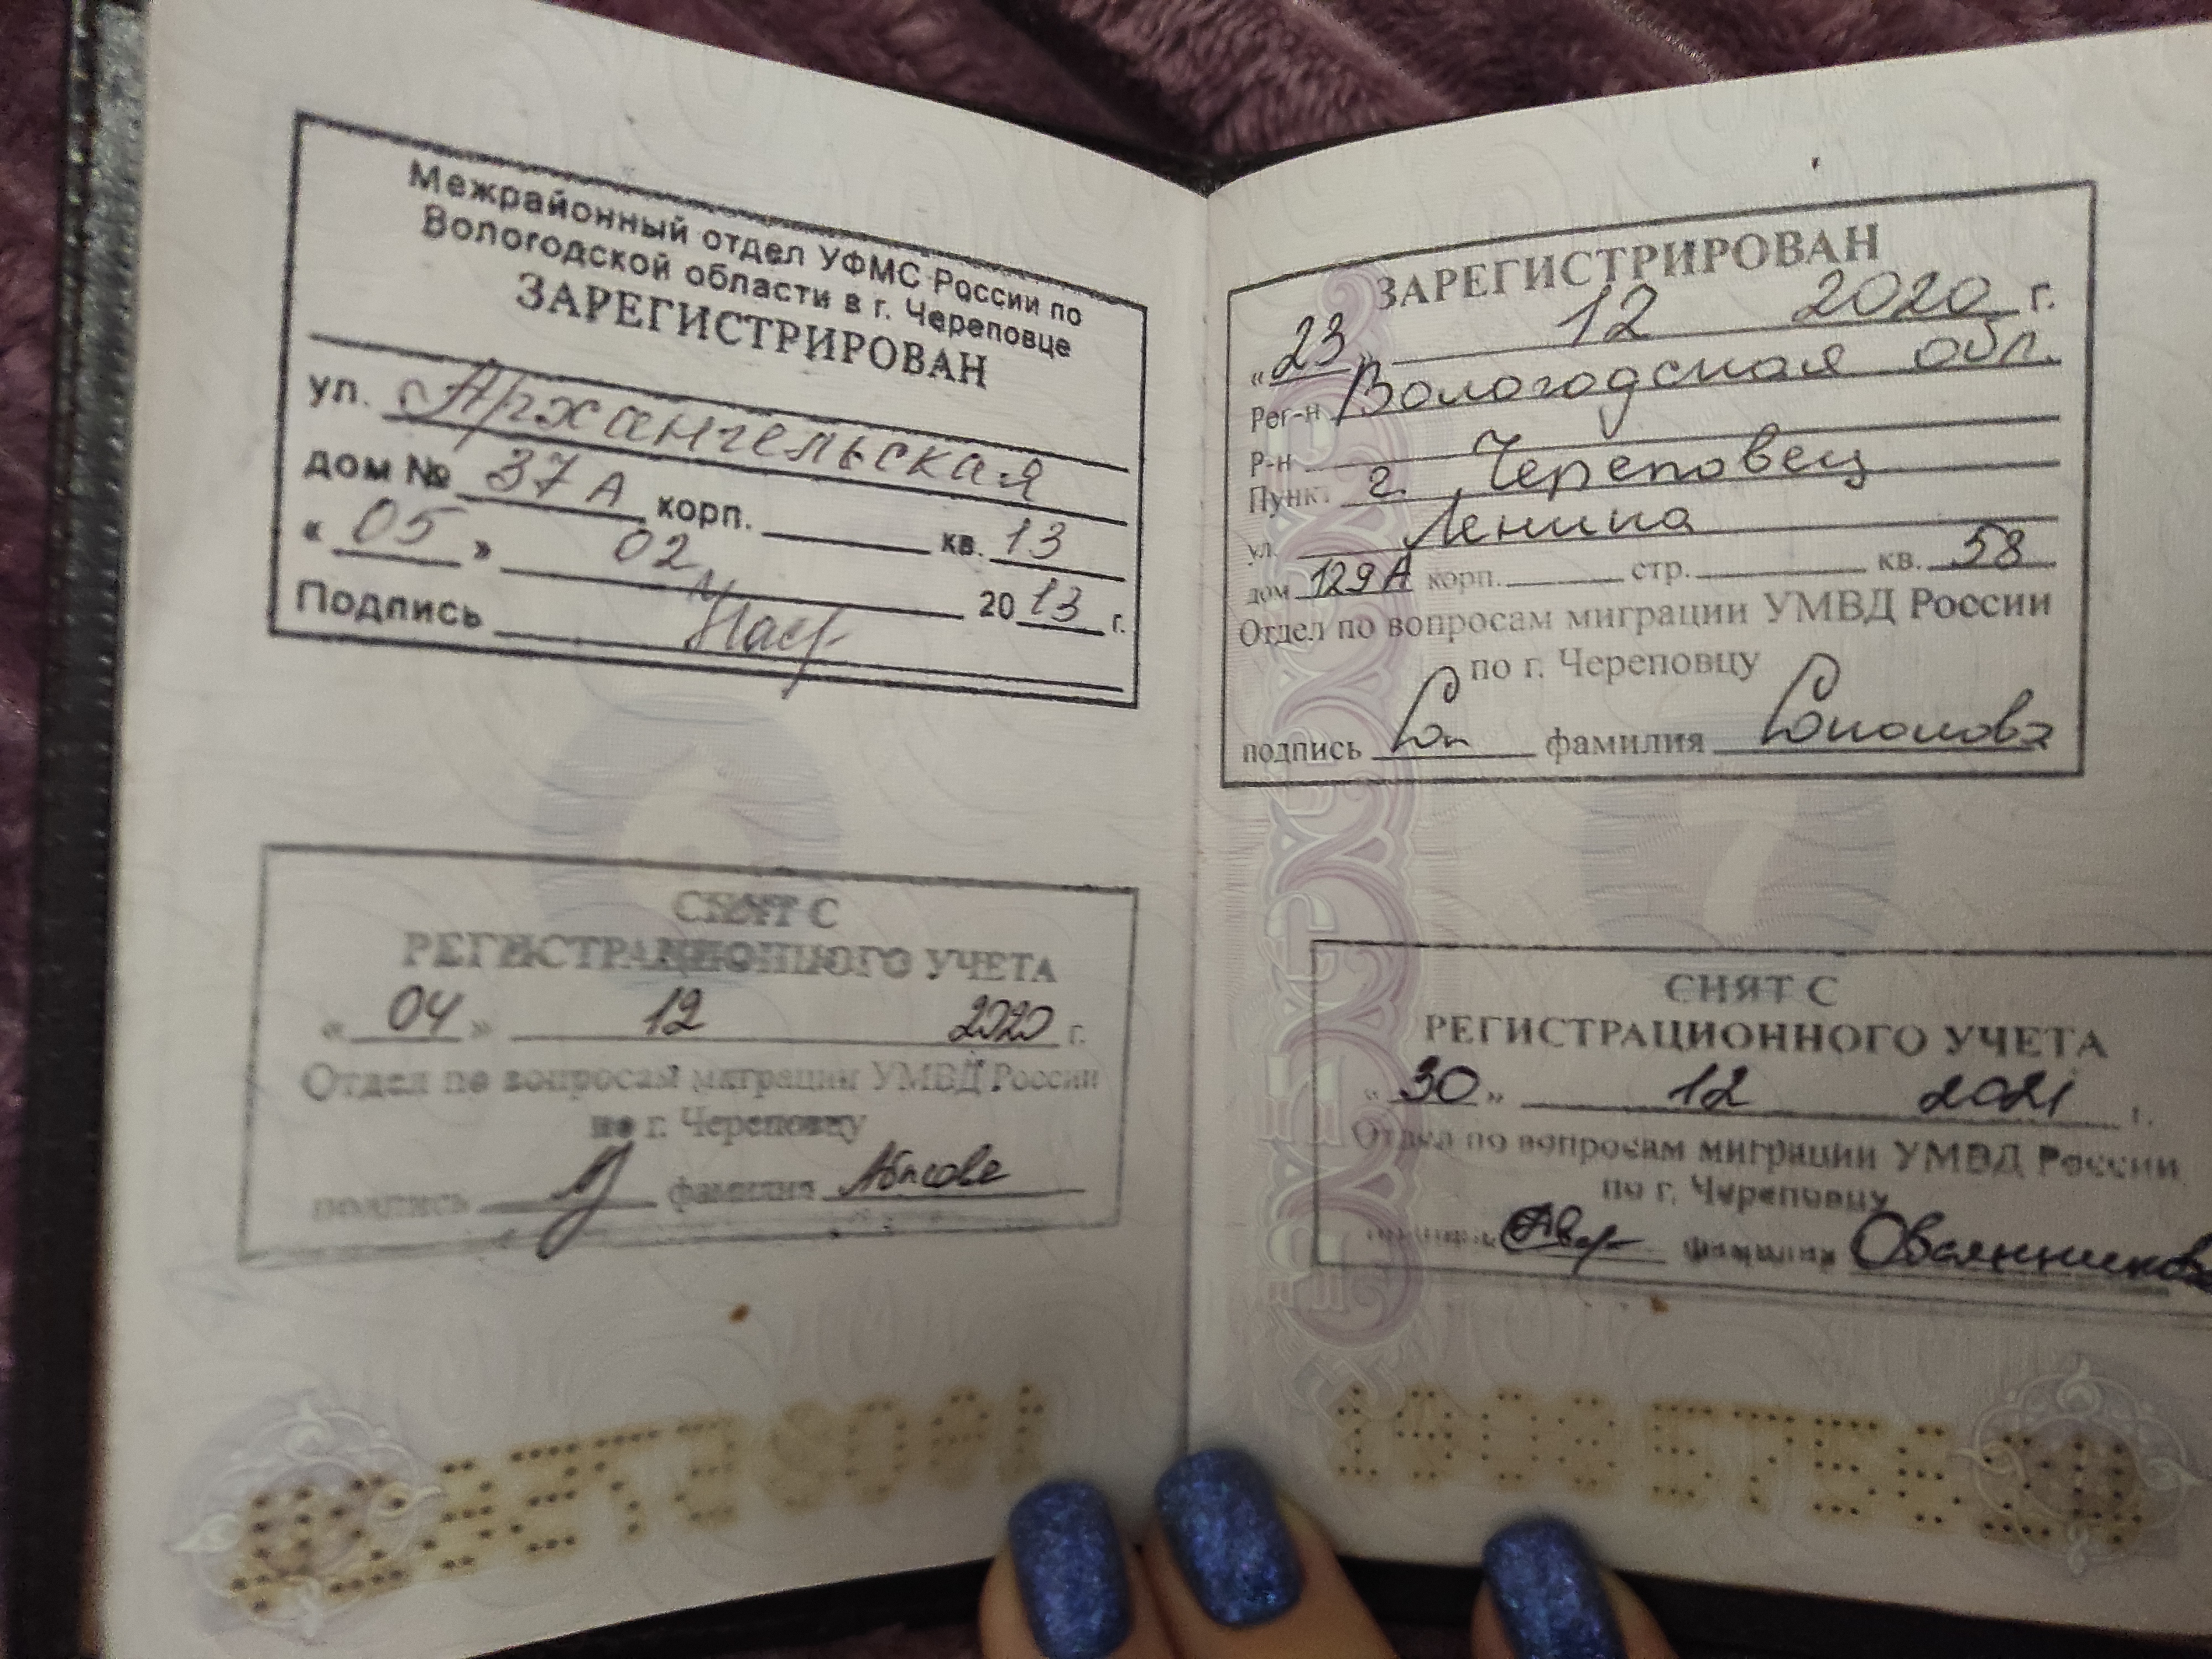 Межрайонный отдел УФМС России по
Вологодской области в г. Череповце
ЗАРЕГИСТРИРОВАН
ул. Архангельская
дом № 37А корп. кв. 13
« 05 » 02 2013 г.
Подпись
СНЯТ С
РЕГИСТРАЦИОННОГО УЧЕТА
« 04 » 12 2020 г.
Отдел по вопросам миграции УМВД России
по г. Череповцу
подпись фамилия
ЗАРЕГИСТРИРОВАН
« 23 » 12 2020 г.
Рег-н Вологодская обл.
Р-н
Пункт г. Череповец
ул. Ленина
дом 129А корп. стр. кв. 58
Отдел по вопросам миграции УМВД России
по г. Череповцу
подпись фамилия
СНЯТ С
РЕГИСТРАЦИОННОГО УЧЕТА
« 30 » 12 2021 г.
Отдел по вопросам миграции УМВД России
по г. Череповцу
подпись фамилия Овсянникова